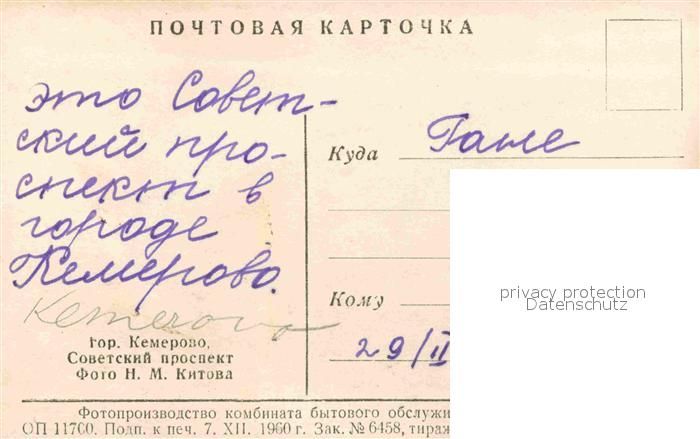 ПОЧТОВАЯ КАРТОЧКА
это Совет-
ский про-
спект в
городе
Кемерово.
Kemerovo
гор. Кемерово,
Советский проспект
Фото Н. М. Китова
Куда Гале
Кому
29/II
privacy protection
Datenschutz
Фотопроизводство комбината бытового обслужи
ОП 11700. Подп. к печ. 7. XII. 1960 г. Зак. № 6458, тираж